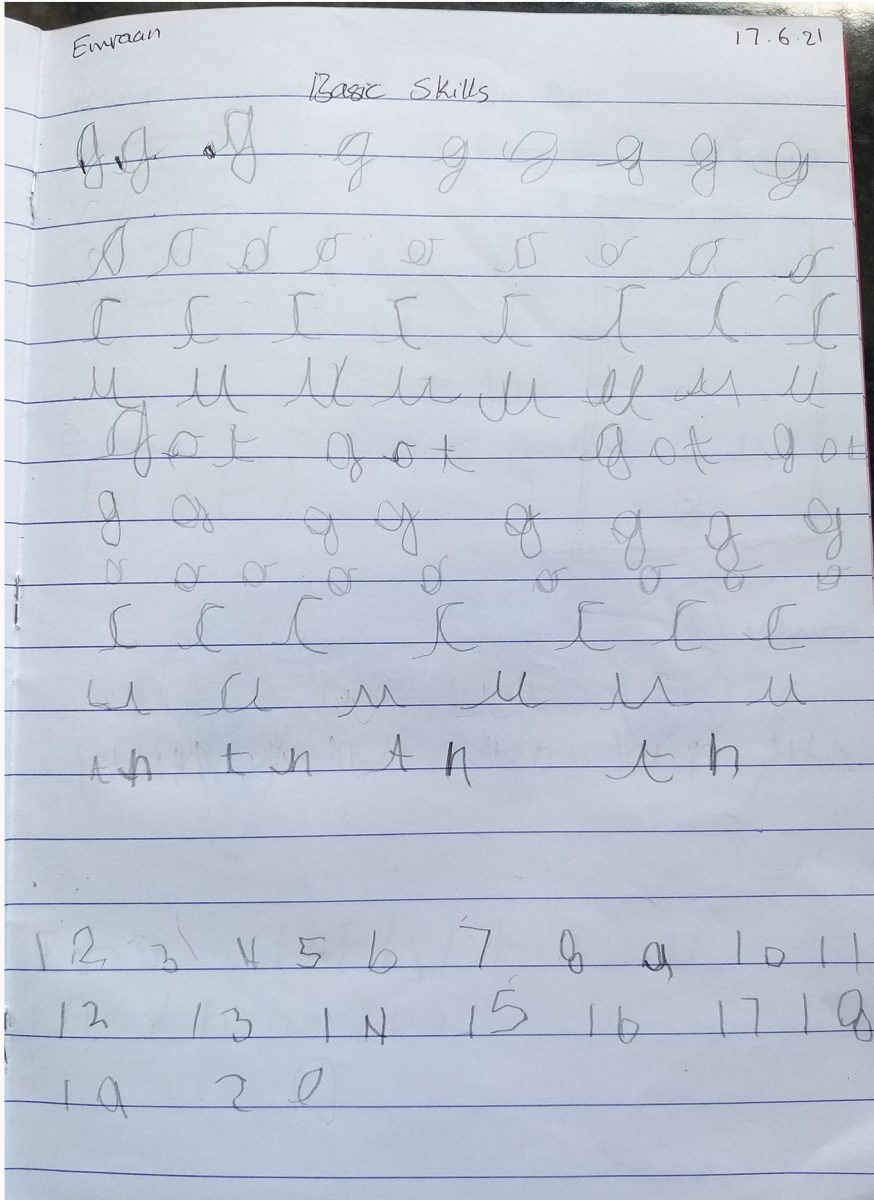 Emraan 17.6.21
Basic Skills
g g g g g g g g g g
o o o o o o o o o
u u u u u u u u
got got got got
g g g g g g g g
o o o o o o o o o
u u u u u u
t n t n t n t n
1 2 3 4 5 6 7 8 9 10 11
12 13 14 15 16 17 18
19 20